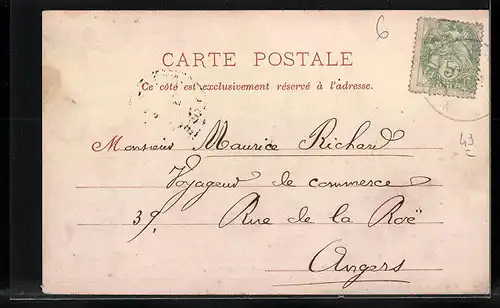 6
CARTE POSTALE
5
Ce côté est exclusivement réservé à l'adresse.
43
Monsieur Maurice Richard
Voyageur de commerce
39, Rue de la Roë
Angers